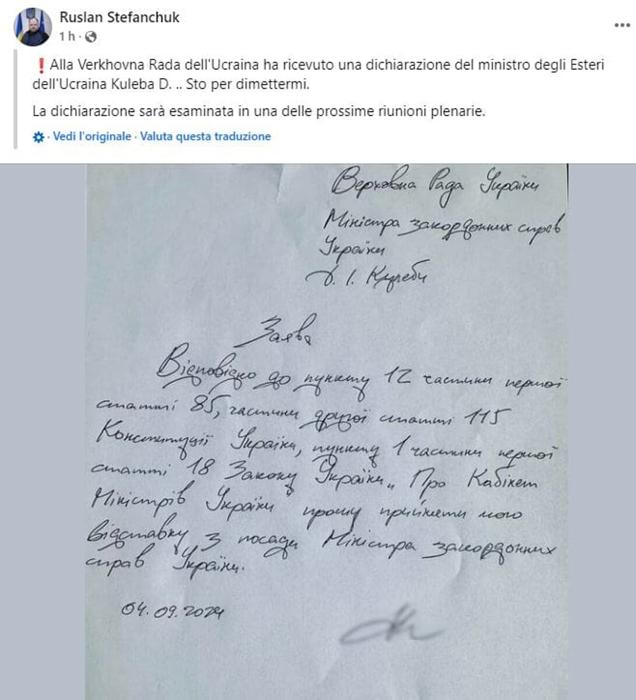 Ruslan Stefanchuk
1 h
❗Alla Verkhovna Rada dell'Ucraina ha ricevuto una dichiarazione del ministro degli Esteri
dell'Ucraina Kuleba D. .. Sto per dimettermi.
La dichiarazione sarà esaminata in una delle prossime riunioni plenarie.
· Vedi l'originale · Valuta questa traduzione
Верховна Рада України
Міністра закордонних справ
України
Д. І. Кулеби
Заява
Відповідно до пункту 12 частини першої
статті 85, частини другої статті 115
Конституції України, пункту 1 частини першої
статті 18 Закону України „Про Кабінет
Міністрів України прошу прийняти мою
відставку з посади Міністра закордонних
справ України.
04.09.2024